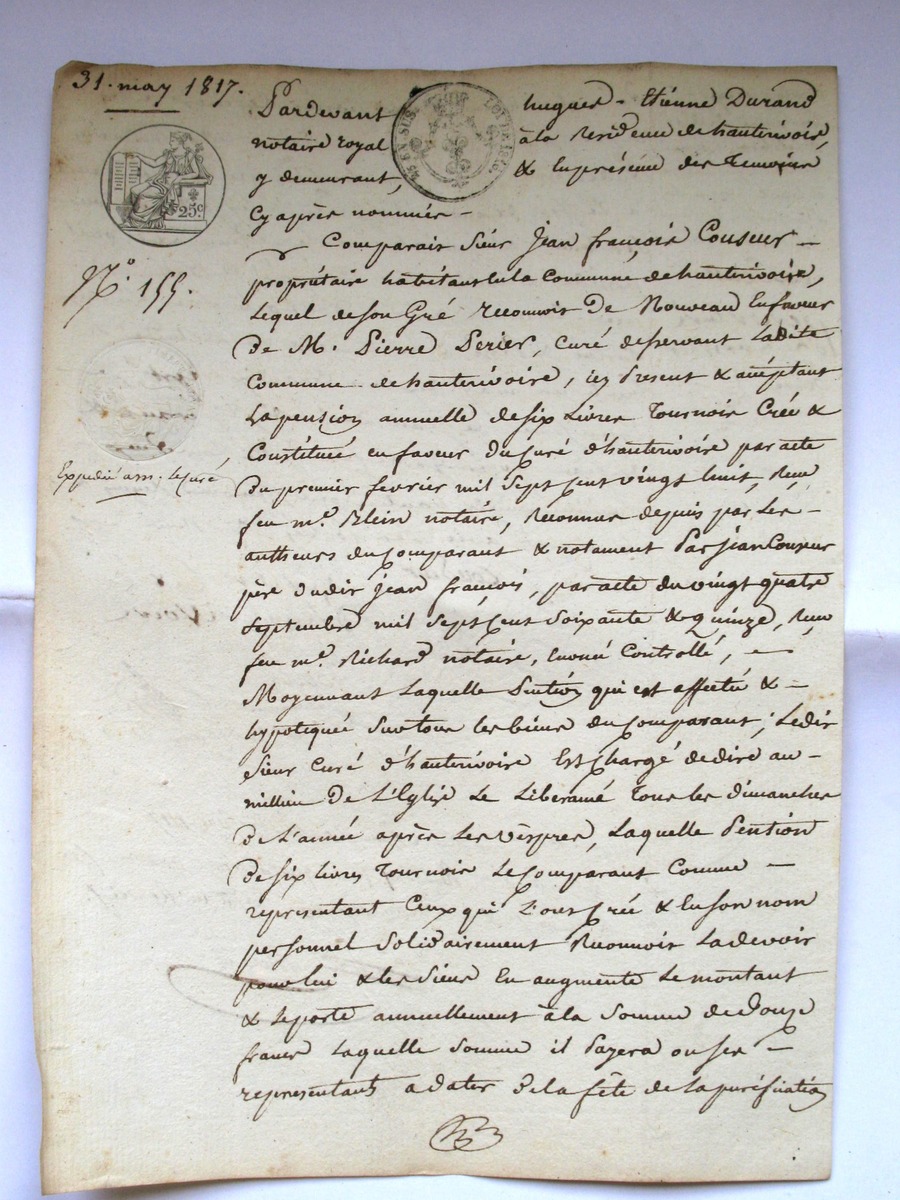 31. may 1817.
Pardevant hugues - Etienne Durand
notaire royal à la Residence de hauterivoire,
y demeurant, & en présence des Temoins
Cy après nommés -
25 c.
N.° 155.
Comparait Sieur Jean françois Couseur -
propriétaire habitant en la Commune de hauterivoire,
Lequel de son Gré reconnois De Nouveau En faveur
De M. Pierre Perier, curé desservant Ladite
Commune de hauterivoire, icy Present & acceptant
La pension annuelle de six Livres Tournois Créé &
Constituée en faveur du Curé d'hauterivoire par acte
Expedié a m. le Curé
Du premier fevrier mil sept cent vingt huit, Reçu
feu m.e Klein notaire, Reconnue depuis par Les -
autheurs du Comparant & notament Par Jean Couseur
père dudit Jean françois, par acte du vingt quatre
Septembre mil sept cent soixante & Quinze, Reçu
feu m.e Richard notaire, Controllé, -
Moyennant Laquelle Pention qui est affectée & -
hypotiquée sur tous les biens du Comparant, Ledit
Sieur Curé d'hauterivoire Est Chargé de dire au -
millieu De L'Eglise Le Liberamé Tous les dimanches
De L'année après Les vêspres, Laquelle Pention
De six Livres Tournois Le Comparant Comme -
représentant Ceux qui L'ont Créé & En son nom
personnel Solidairement Reconnois La devoir
pour lui & les Siens En augmente Le montant
& Le porte annuellement à la Somme de Douze
francs Laquelle Somme il Payera ou ses -
représentants a dater De la fête de La purification